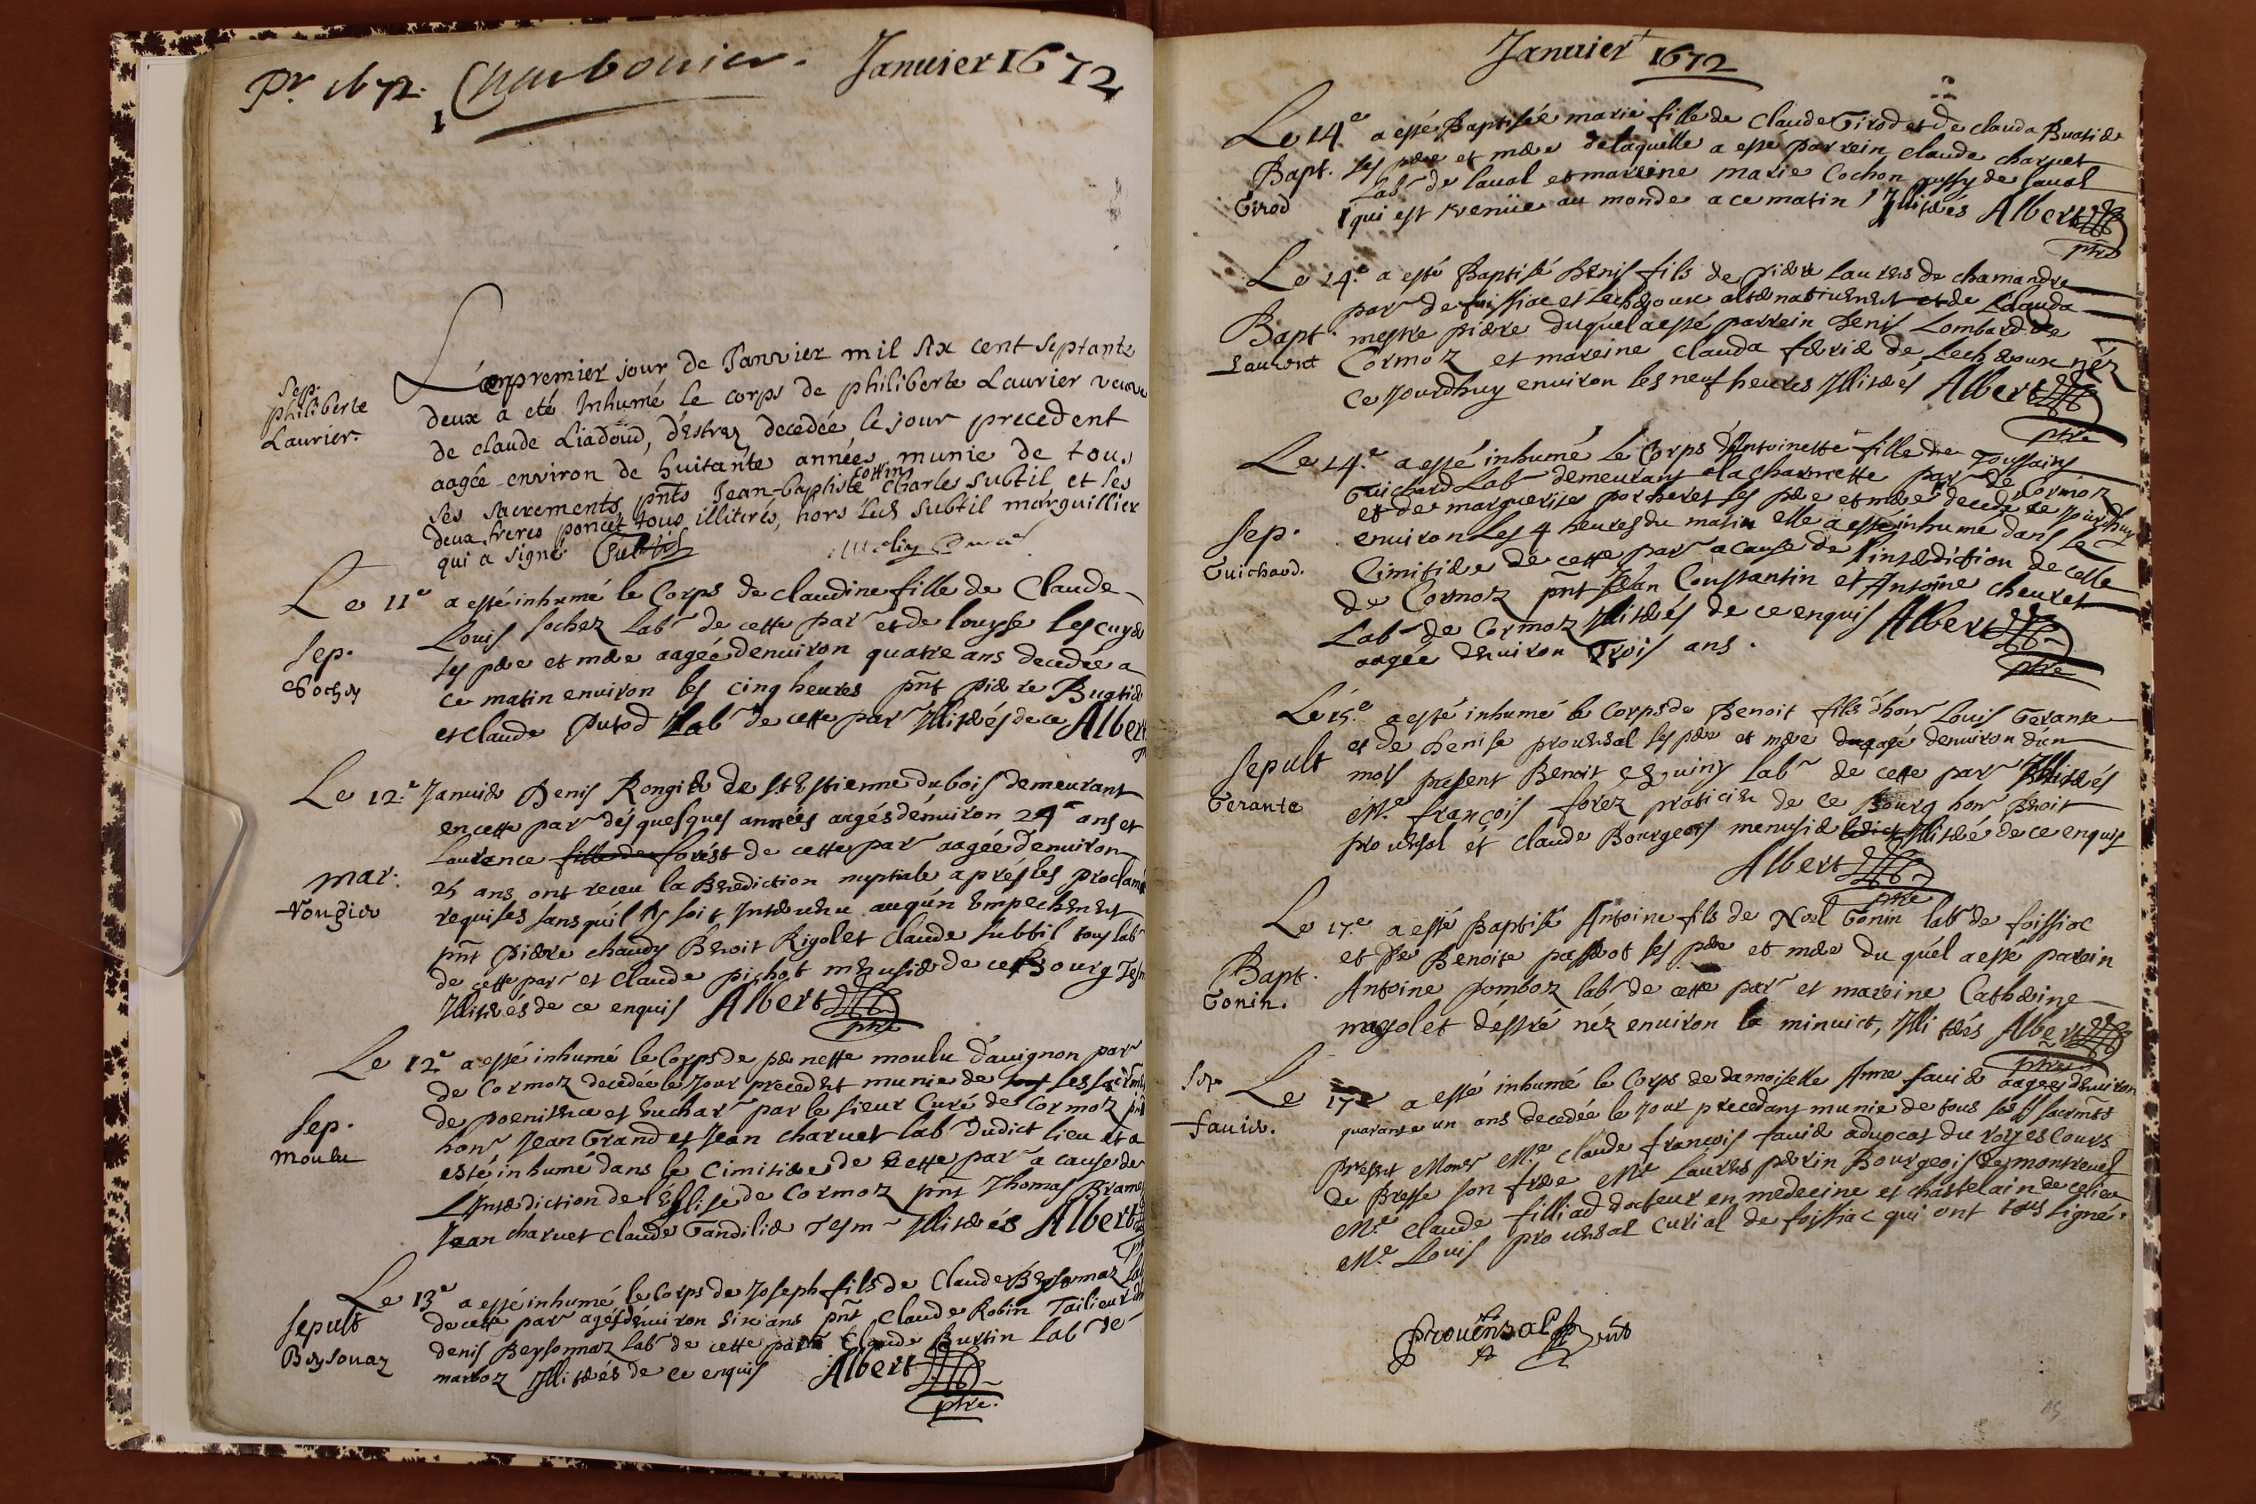 Pr. 1672. Charbonier. Januier 1672
1
Sep.
philiberte
Laurier.
premier jour de Janvier mil six cent septante
deux a eté Inhumé le corps de philiberte Laurier veuve
de claude Liadoud, d'Estrez decedée le jour precedent
aagée environ de huitante années munie de tous
ses sacrements, pnts Jean-baptiste cottin charles subtil et les
deux freres poncet tous illiterés, hors led subtil marguillier
qui a signé Subtil
Le 11e a esté inhumé le Corps de claudine fille de Claude
Louis Lab de cette par et de louyse
ses pere et mere aagée denuiron quatre ans decedée a
ce matin enuiron les cinq heures pnt piere
et claude putod Lab de cette par Illiterés de ce Albert
Sep.
Le 12e Januier Denis Rongier de St Estienne dubois demeurant
en cette par des quelques années aagés denuiron 24 ans et
Laurance fille de forest de cette par aagée denuiron
25 ans ont receu la Benediction nuptiale aprés les proclam
requises sans quil sy soit Interuenu auqun Empechement
pnt piere chaudy Benoit Rigolet Claude Subtil tous lab
de cette par et Claude pichot menusier de ce Bourg Tesm
Illiterés de ce enquis Albert
ptre
mar.
Rongier
Le 12e a esté inhumé le Corps de pernette moulu dauignon par
de Cormoz decedée le Jour precedent munie de tout les sacrm
de poenitence et Euchar par le sieur Curé de Cormoz pnt
hon Jean Grand et Jean charuet lab dudict lieu et a
esté inhumé dans le Cimitiere de cette par a cause de
L'Interdiction de l'Eglise de Cormoz pnt Thomas
Jean charuet claude Gandilier Tesm Illiterés Albert
Sep.
moulu
Le 13e a esté inhumé le Corps de Joseph fils de Claude Beysonnaz
de cette par agés denuiron Six ans pnt Claude Robin Tailieur
denis Beysonnaz Lab de cette par Claude Burtin Lab de
marboz Illiterés de ce enquis Albert
ptre.
Sepult
Beysonaz
Januier 1672
Le 14e a esté Baptisée marie fille de Claude Tirod et de clauda Buatier
ses pere et mere delaquelle a esté parrein claude charuet
Lab de laual et mareine marie Cochon aussy de laual
qui est venüe au monde a ce matin Illiteres Albert
ptre
Bapt.
Tirod
Le 14e a esté Baptisé Denis fils de piere Laurens de chamandre
par de foissiac et Lecheroux alternatiuement et de Clauda
mestre piere duquel a esté parrein Denis Lombard de
Cormoz et mareine Clauda ferier de Lecheroux néz
Ce jourdhuy enuiron les neuf heures Illiterés Albert
ptre
Bapt.
Laurent
Le 14e a esté inhumé le Corps d'Antoinette fille de Toussains
Guichard Lab demeurant a la charmette par de Cormoz
et de marguerite porcheret ses pere et mere decedée ce jourdhuy
enuiron les 4 heures du matin elle a esté inhumé dans le
Cimitiere de cette par a cause de l'interdiction de celle
de Cormoz pnt Jean Constantin et Antoine cheuret
Lab de Cormoz Illiterés de ce enquis Albert
aagée denuiron Trois ans.
ptre
Sep.
Guichard.
Le 15e a esté inhumé le Corps de Benoit fils dhon Louis Gerante
et de Denise prouensal ses pere et mere aagé denuiron d'un
mois present Benoit Lab de cette par Illiterés
Me françois forez praticien de ce Bourg hon Benoit
prouensal et claude Bourgeois menusier Illiteré de ce enquis
Albert
ptre
Sepult
Gerante
Le 17e a esté Baptisé Antoine fils de Noel Gonin lab de foissiac
et de Benoite passerot ses pere et mere du quel a esté parein
Antoine pomboz lab de cette par et mareine Catherine
mayolet d'estré néz enuiron le minuict, Illiterés Albert
ptre
Bapt.
Gonin.
Le 17e a esté inhumé le Corps de damoiselle Anne fauier aagée denuiron
quarante un ans decedée le Jour precedant munie de tous ses sacrmts
Present Monsr Me Claude françois fauier aduocat du roy es Cours
de Bresse son frere Me Laurens perin Bourgeois de montreuel
Me Claude filliad docteur en medecine et chastelain de ce lieu
Me Louis prouensal Curial de foissiac qui ont tous signé.
Sep.
fauier.
Prouensal